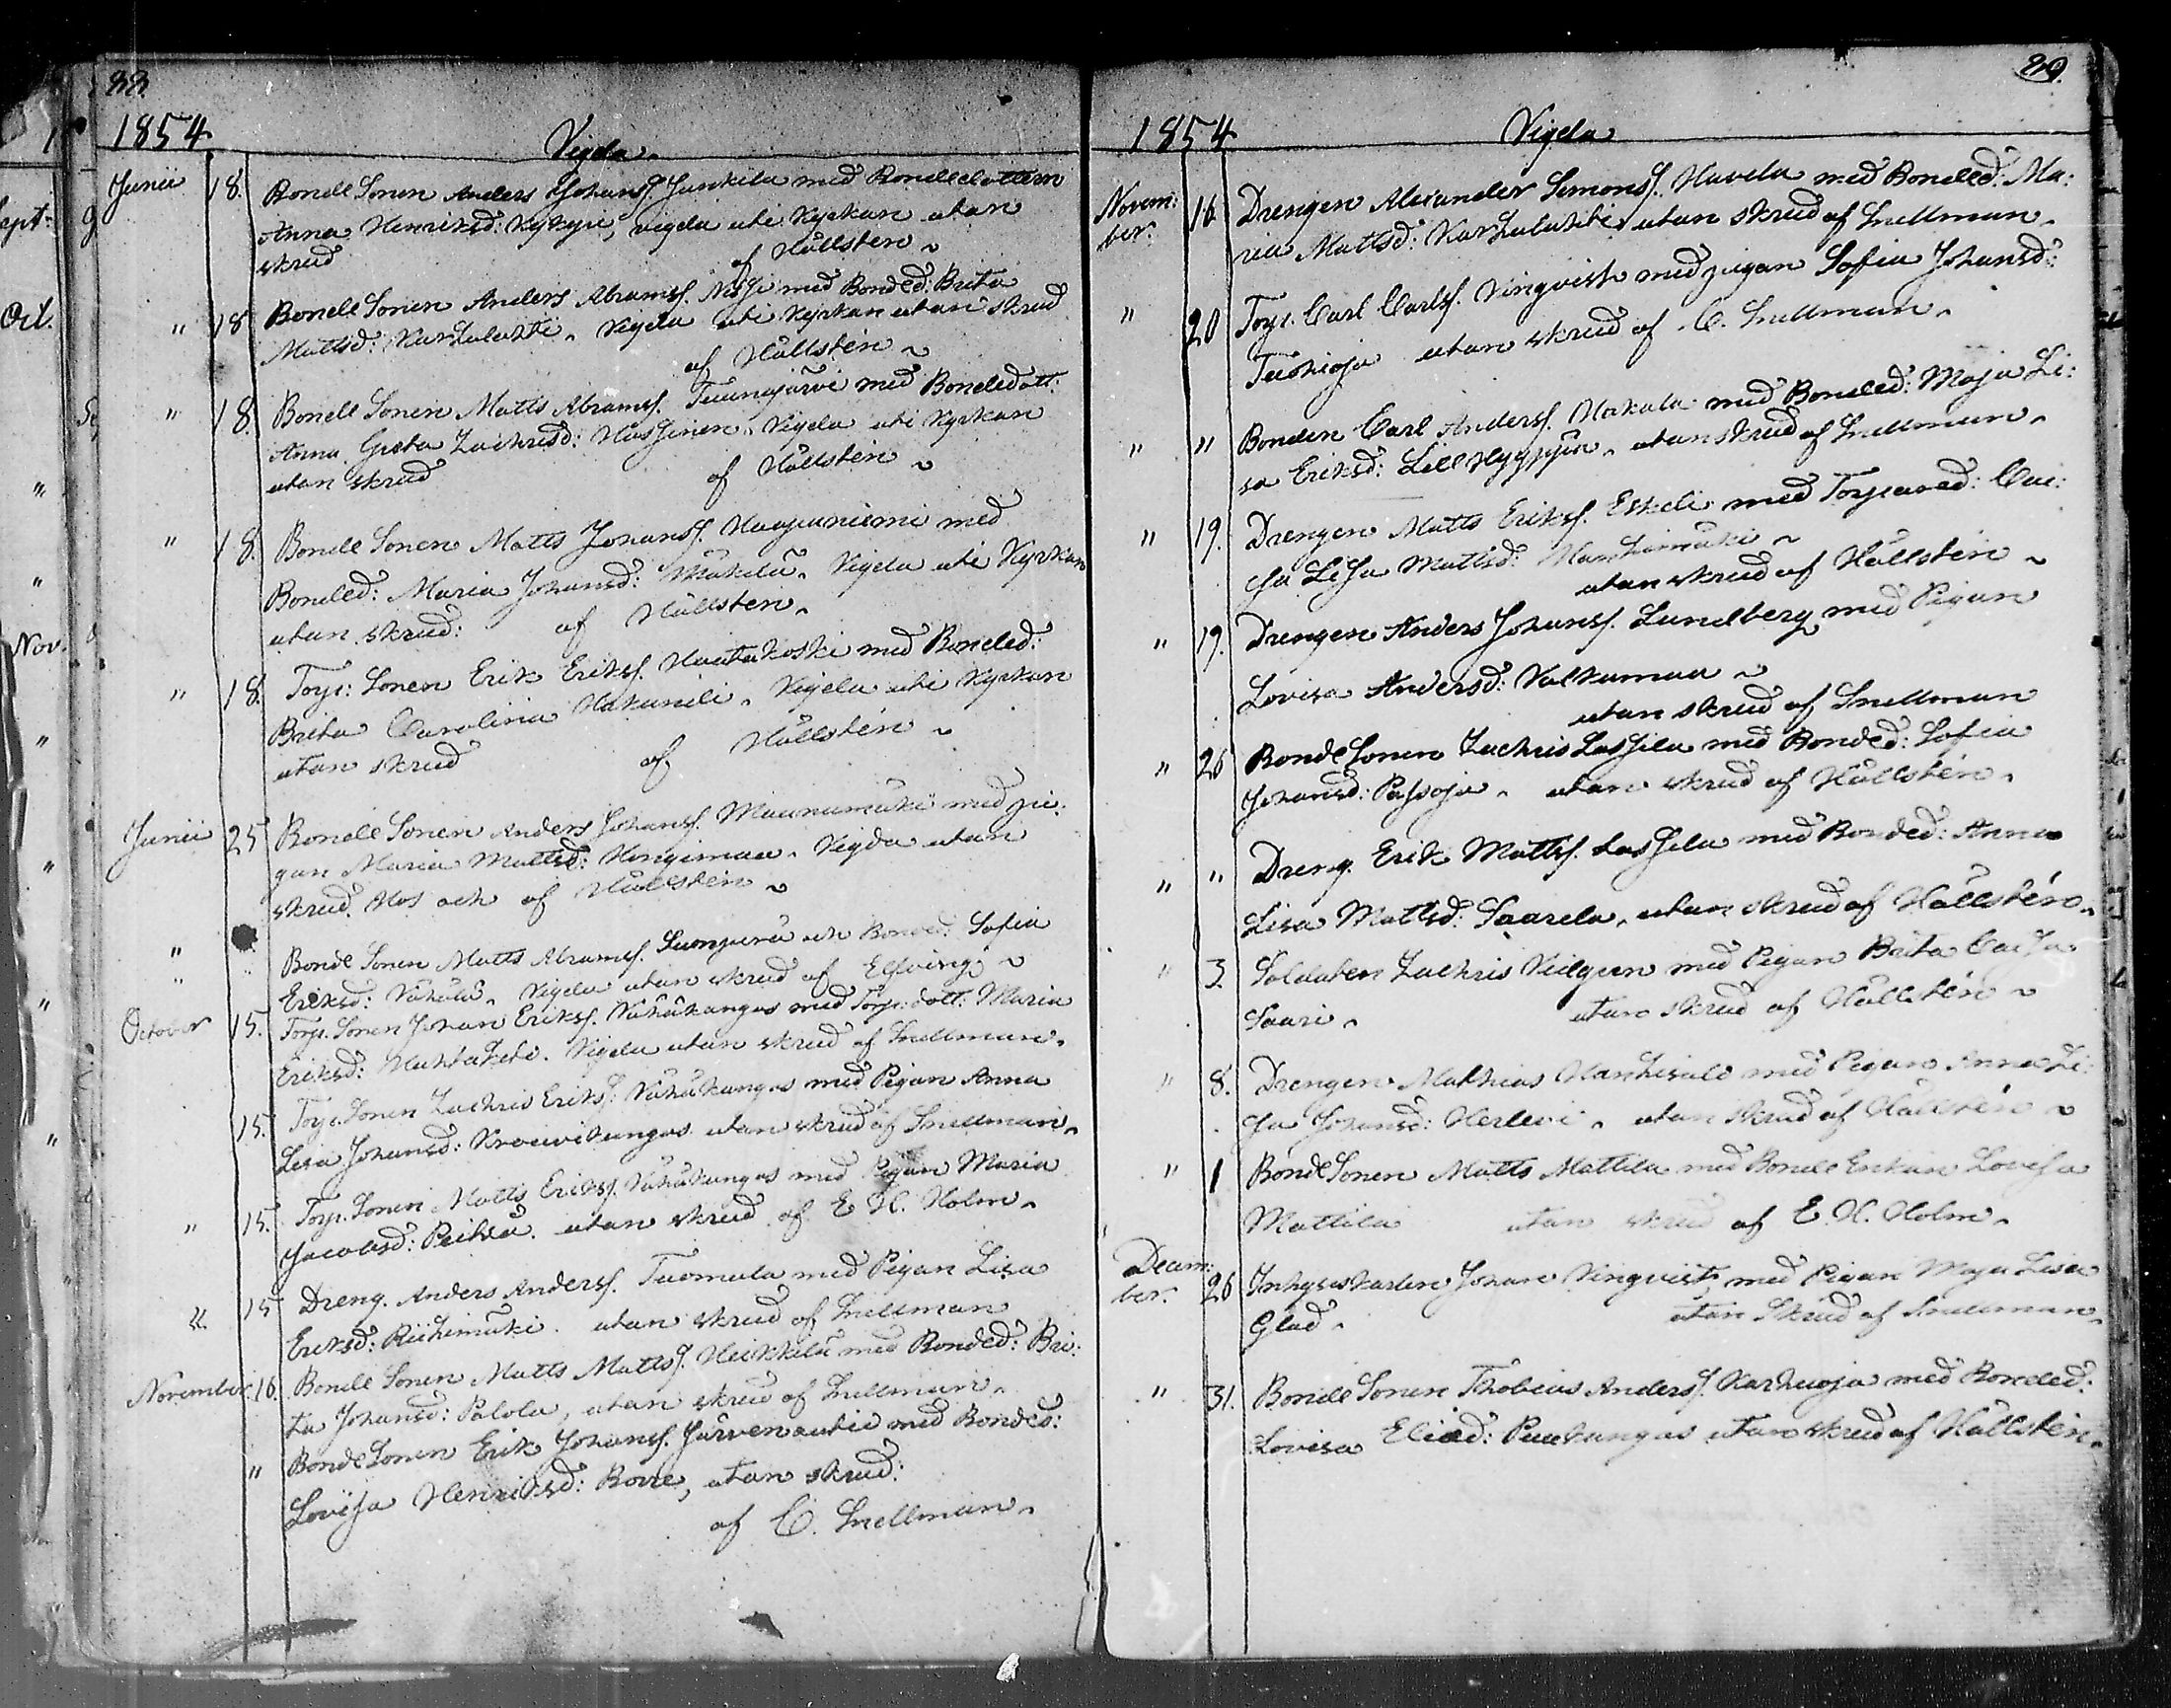 88.
1854.
Vigda.
Junii 18. Bonde Sonen Anders Johansf. Junkila med Bondedottern
Anna Henriksd: Kykyri, vigda uti Kyrkan utan
skrud af Hållsten
" 18 Bonde Sonen Anders Abramsf. med Bonded: Brita
Mattsd: Karhulahti. Vigda uti Kyrkan utan skrud
af Hållstén
" 18. Bonde Sonen Matts Abramsf. med Bondedott:
Anna Greta Zachrisd: Vigda uti Kyrkan
utan skrud af Hållstén
" 18. Bonde Sonen Matts Johansf. Haapaniemi med
Bonded: Maria Johansd: Mäkelä. Vigda uti Kyrkan
utan skrud: af Hållsten.
" 18. Torp: Sonen Erik Eriksf. Hautakoski med Bonded:
Brita Carolina Vigda uti Kyrkan
utan skrud af Hållstén
Junii 25 Bonde Sonen Anders Johansf. Maunumäki med pi:
gan Maria Mattsd: Vigda utan
skrud. Hos och af Hållstén
" Bonde Sonen Matts Abramsf. och Bonded: Sofia
Eriksd: Vähälä. Vigda utan skrud af Elfving
October 15. Torp. Sonen Johan Eriksf. Vähäkangas med Torp: dott: Maria
Eriksd: Vigda utan skrud af Snellman.
15. Torp. Sonen Zachris Eriksf: Vähäkangas med Pigan Anna
Lisa Johansd: utan skrud af Snellman.
" 15. Torp. Sonen Matts Eriksf. Vähäkangas med Pigan Maria
Jacobsd: utan skrud af E H. Holm.
" 15 Dreng. Anders Andersf. Tuomela med Pigan Lisa
Eriksd: Riihimäki. utan skrud af Snellman
November. 16. Bonde Sonen Matts Mattsf. Heikkilä med Bonded: Bri:
ta Johansd: Palola, utan skrud af Snellman.
" Bonde Sonen Erik Johansf. Järvenautio med Bonded:
Lovisa Henriksd: utan skrud:
af C. Snellman.
89.
1854
Vigda
Novem:
ber. 16. Drengen Alexander Simonsf. Havela med Bonded: Ma:
ria Mattsd: Karhulahti. utan skrud af Snellman.
" 20 Torp. Carl Carlsf. Vinqvist med pigan Sofia Johansd:
Tuohioja utan skrud af C. Snellman.
" " Bonden Carl Andersf. Hakala med Bonded: Maja Li:
sa Eriksd: utan skrud af Snellman.
" 19. Drengen Matts Eriksf. Eskeli med Torpared: Cai:
sa Lisa Mattsd: Hanhimäki
utan skrud af Hållstén
" 19. Drengen Anders Johansf. Lundberg med Pigan
Lovisa Andersd: Valkamaa
utan skrud af Snellman
" 26 Bonde Sonen Zachris Lassila med Bonded: Sofia
Johansd: Passoja. utan skrud af Hållstén.
" " Dreng. Erik Mattsf. Lassila med Bonded: Anna
Lisa Mattsd: Saarela. utan skrud af Hållstén.
" 3. Soldaten Zachris med Pigan Brita Caisa
Saari. utan skrud af Hållstén
" 8. Drengen Mathias Hanhisalo med Pigan Anna Li:
sa Johansd: Herlevi. utan skrud af Hållstén
" 1 Bonde Sonen Matts Mattila med Bonde Enkan Lovisa
Mattila utan skrud af E. H. Holm.
Decem:
ber. 26 Inhyseskarlen Johan Vinqvist, med Pigan Maja Lisa
Glad. utan Skrud af Snellman.
" 31. Bonde Sonen Thobias Andersf. Karhuoja med Bonded:
Lovisa Eliæd: Puukangas utan skrud af Hållstén.